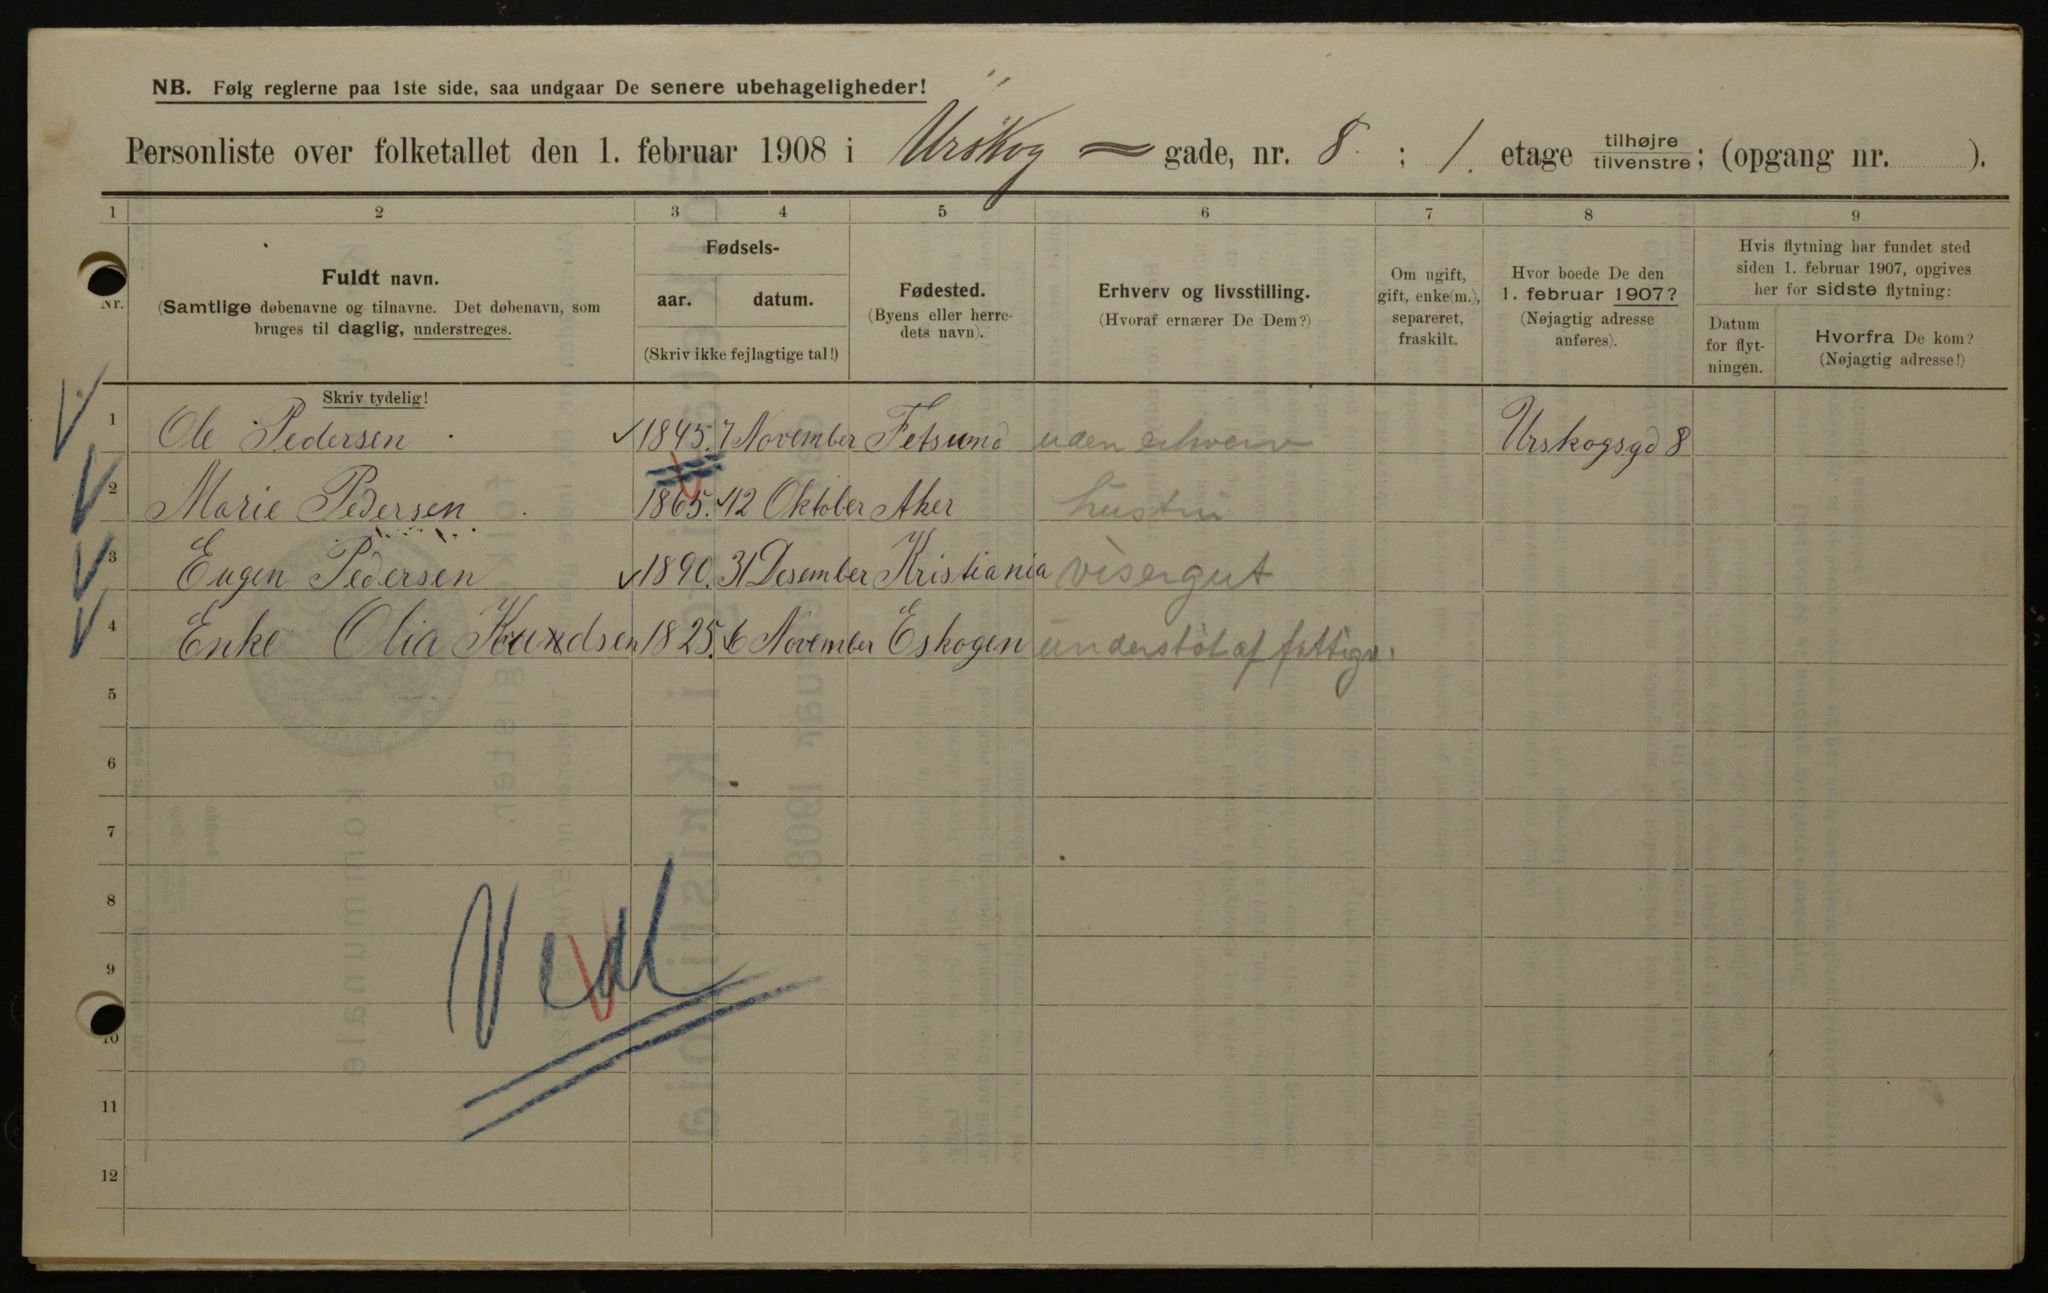 NB. Følg reglerne paa 1ste side, saa undgaar De senere ubehageligheder!
Personliste over folketallet den 1. februar 1908 i Urskog gade, nr. 8 ; 1. etage tilhøjre tilvenstre; (opgang nr. ).
1 2 3 4 5 6 7 8 9
Nr.
Fuldt navn.
(Samtlige døbenavne og tilnavne. Det døbenavn, som
bruges til daglig, understreges.
Skriv tydelig!
Fødsels-
aar. datum.
(Skriv ikke fejlagtige tal!)
Fødested.
(Byens eller herre-
dets navn).
Erhverv og livsstilling.
(Hvoraf ernærer De Dem?)
Om ugift,
gift, enke(m.),
separeret,
fraskilt.
Hvor boede De den
1. februar 1907?
(Nøjagtig adresse
anføres).
Hvis flytning har fundet sted
siden 1. februar 1907, opgives
her for sidste flytning:
Datum
for flyt-
ningen.
Hvorfra De kom?
(Nøjagtig adresse!)
1 Ole Pedersen 1845. 7 November Fetsund uden erhverv Urskogsgd 8
2 Marie Pedersen 1865. 12 Oktober Aker hustru
3 Eugen Pedersen 1890. 31 Desember Kristiania visergut
4 Enke Olia Knudsen 1825. 6 November Eskogen understöt af fattigv.
5
6
7
8
9
10
11
12